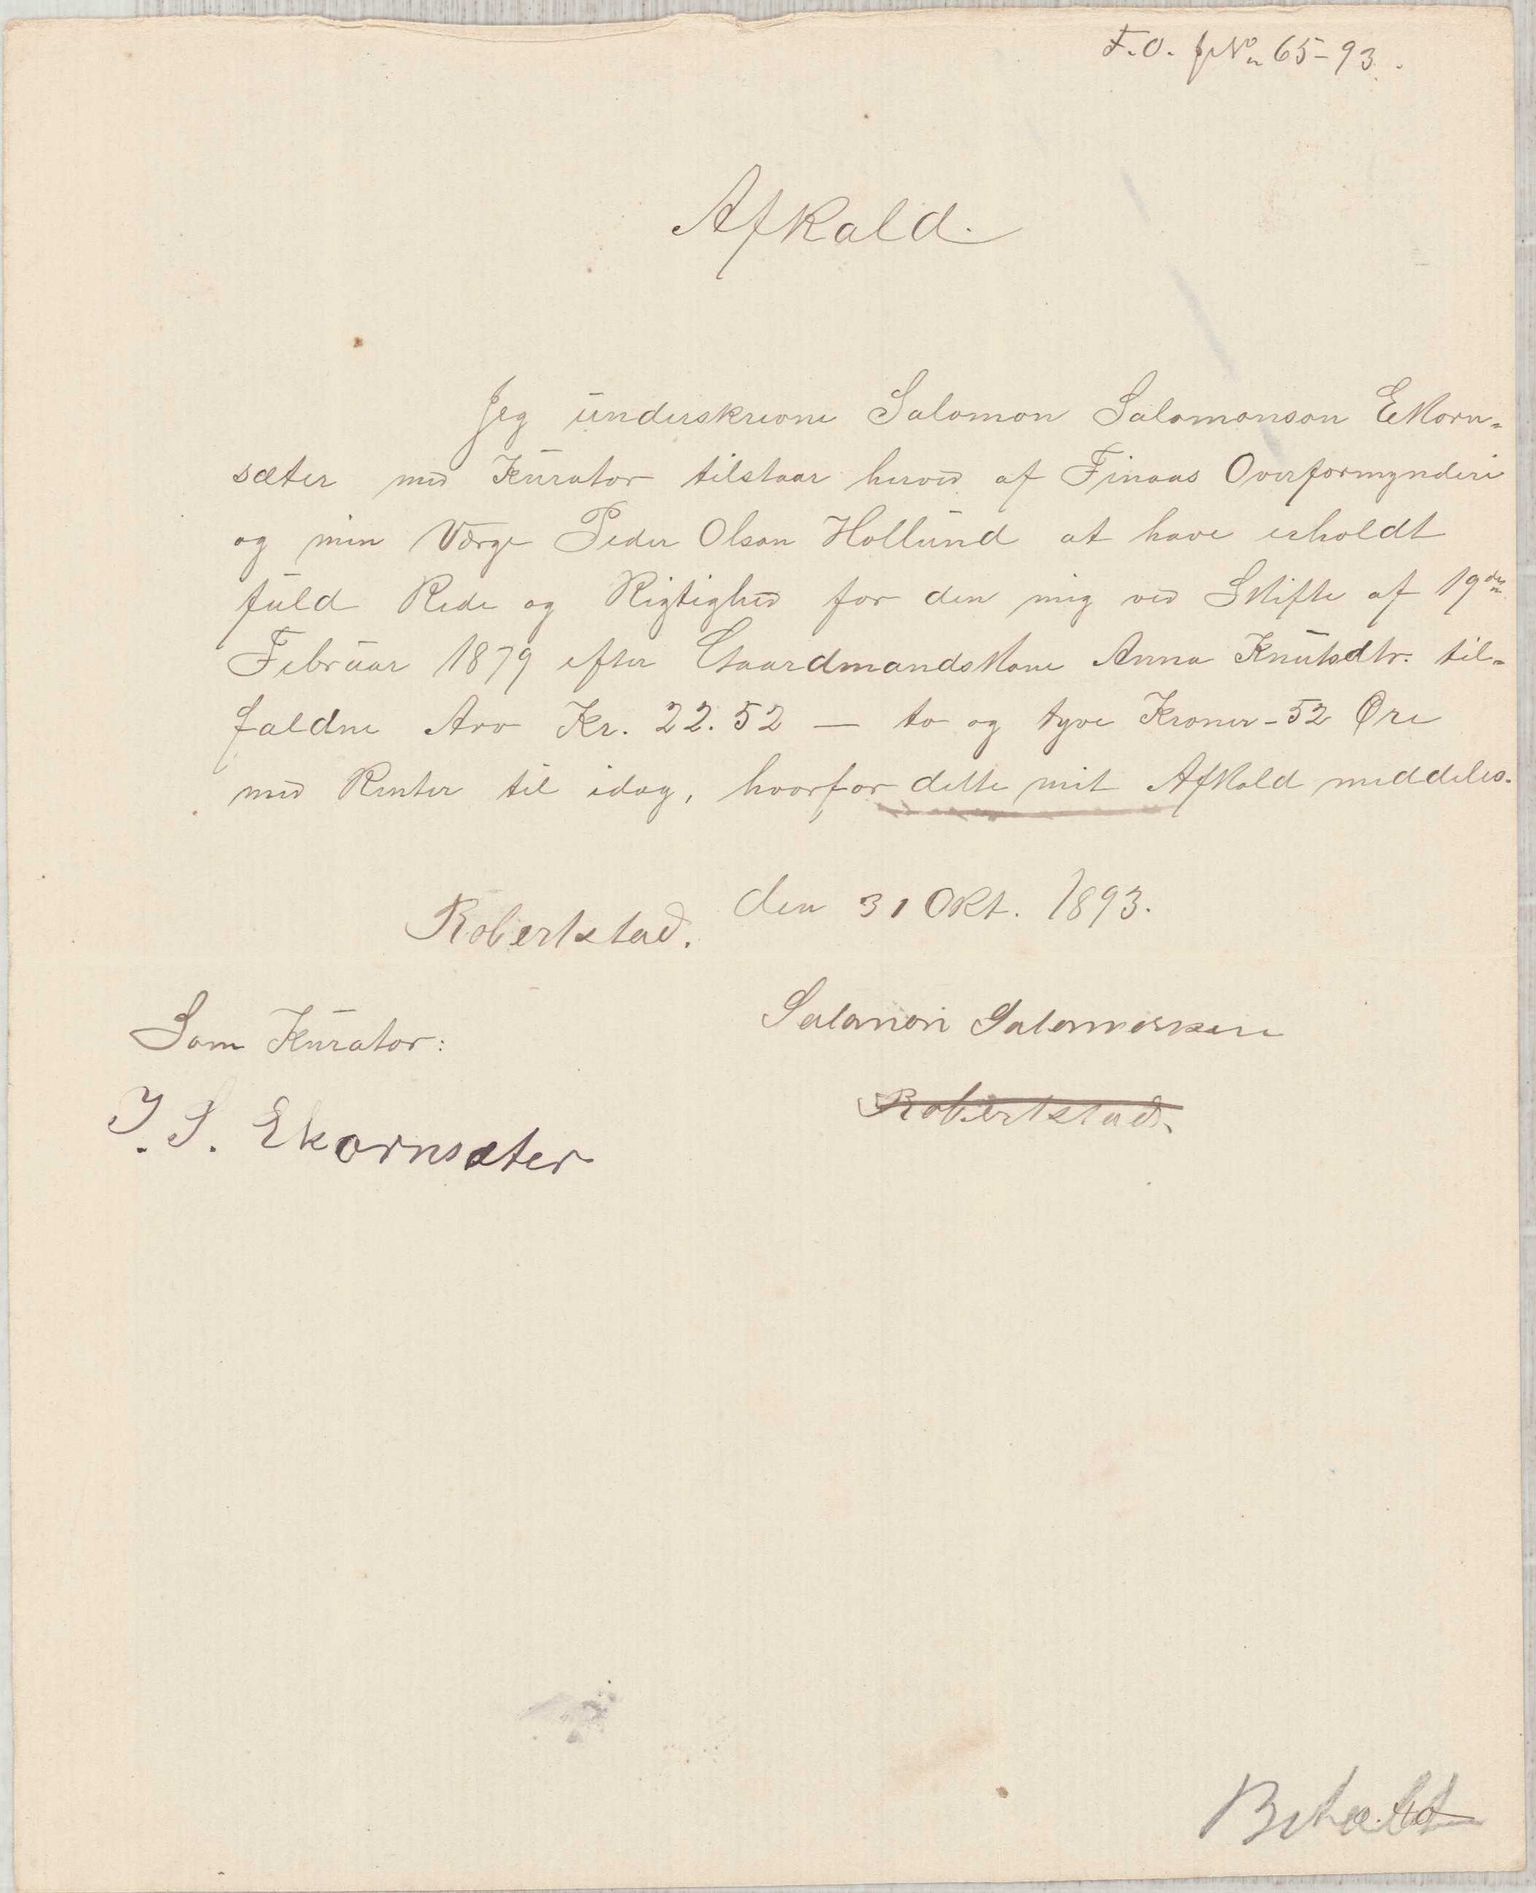 F.O. J No 65-93.
Afkald.
Jeg underskrevne Salomon Salomonson Ekorn-
sæter med Kurator tilstaar herved af Finaas Overformynderi
og min Værge Peder Olson Hollund at have erholdt
fuld Rede og Rigtighed for den mig ved Skifte af 19den
Februar 1879 efter Gaardmandskone Anna Knutsdtr. til-
faldne Arv Kr. 22.52 — to og tyve Kroner - 52 Øre
med Renter til idag, hvorfor dette mit Afkald meddeles.
Robertstad. den 31 Okt. 1893.
Som Kurator: Salamon Salamonsen
Robertstad.
J. S. Ekornsæter
Betalt